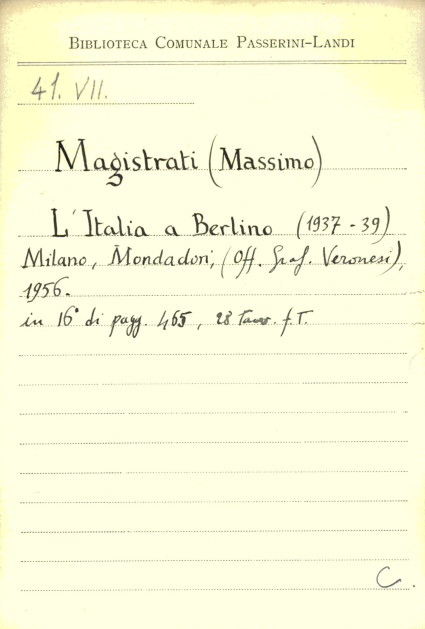 BIBLIOTECA COMUNALE PASSERINI-LANDI
41. VII.
Magistrati (Massimo)
L'Italia a Berlino (1937-39)
Milano, Mondadori, (Off. Graf. Veronesi),
1956.
in 16° di pagg. 465, 28 Tavv. f.T.
C.